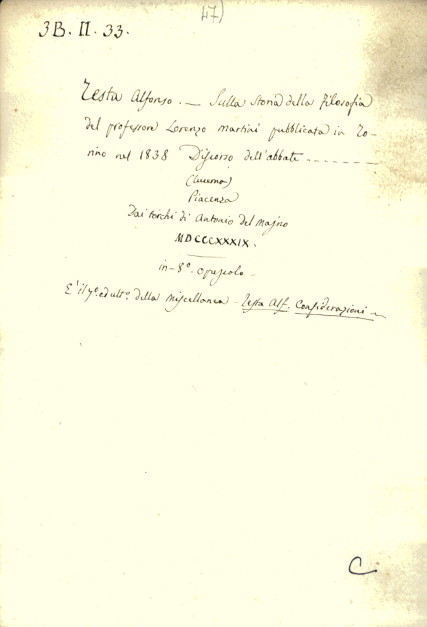 47)
3B. II. 33.
Testa Alfonso. — Sulla Storia della Filosofia
del professore Lorenzo Martini pubblicata in To-
rino nel 1838 Discorso dell'abbate
Piacenza
Dai torchi di Antonio del Majno
MDCCCXXXIX.
in-8°. opuscolo -
E' il 7° ed ult°. della Miscellanea - Testa Alf. Considerazioni -
C